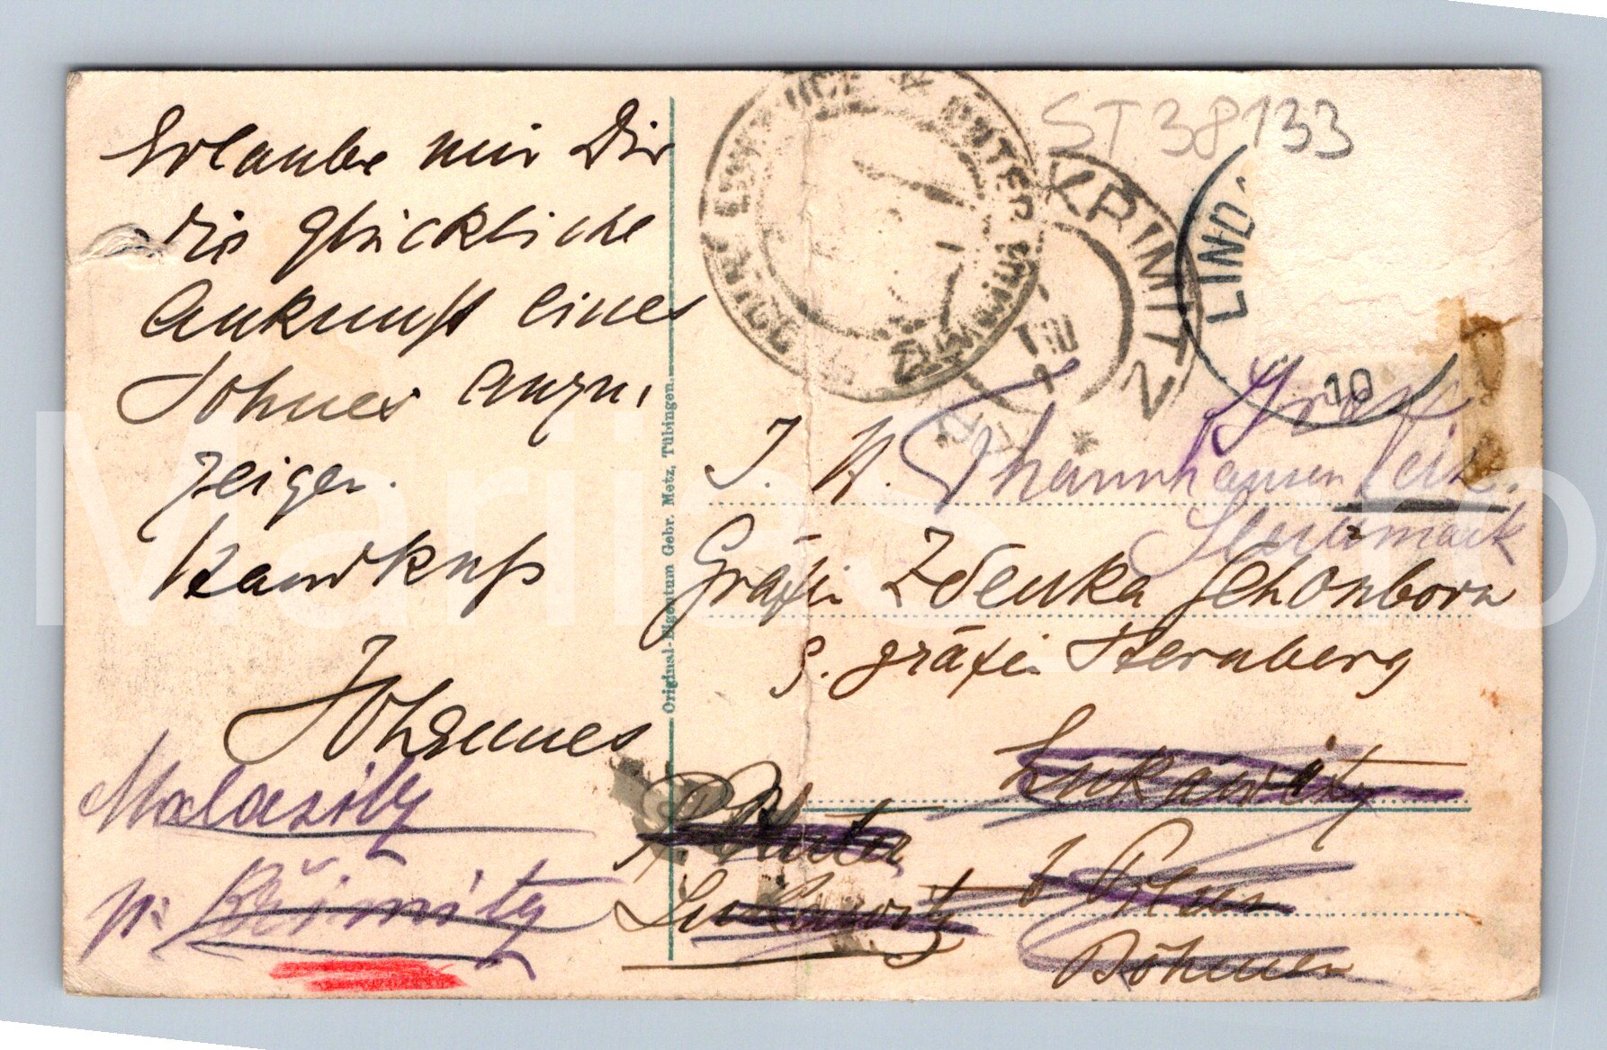 Erlaube mir Dir
die glückliche
Ankunft eines
Sohnes anzu,
zeigen.
Handkuß
Johannes
Malasitz
p. Křimitz
Original-Eigentum Gebr. Metz, Tübingen.
ST38133
UNTER
KRIMITZ
VIII
LIND
10
Graf
I. H. Thannhausen
Steiermark
Gräfin Zdenka Schönborn
g. gräfin Sternberg
Lukawitz
P. Unter
Lukawitz
b Pilsen
Böhmen
Marjles.o